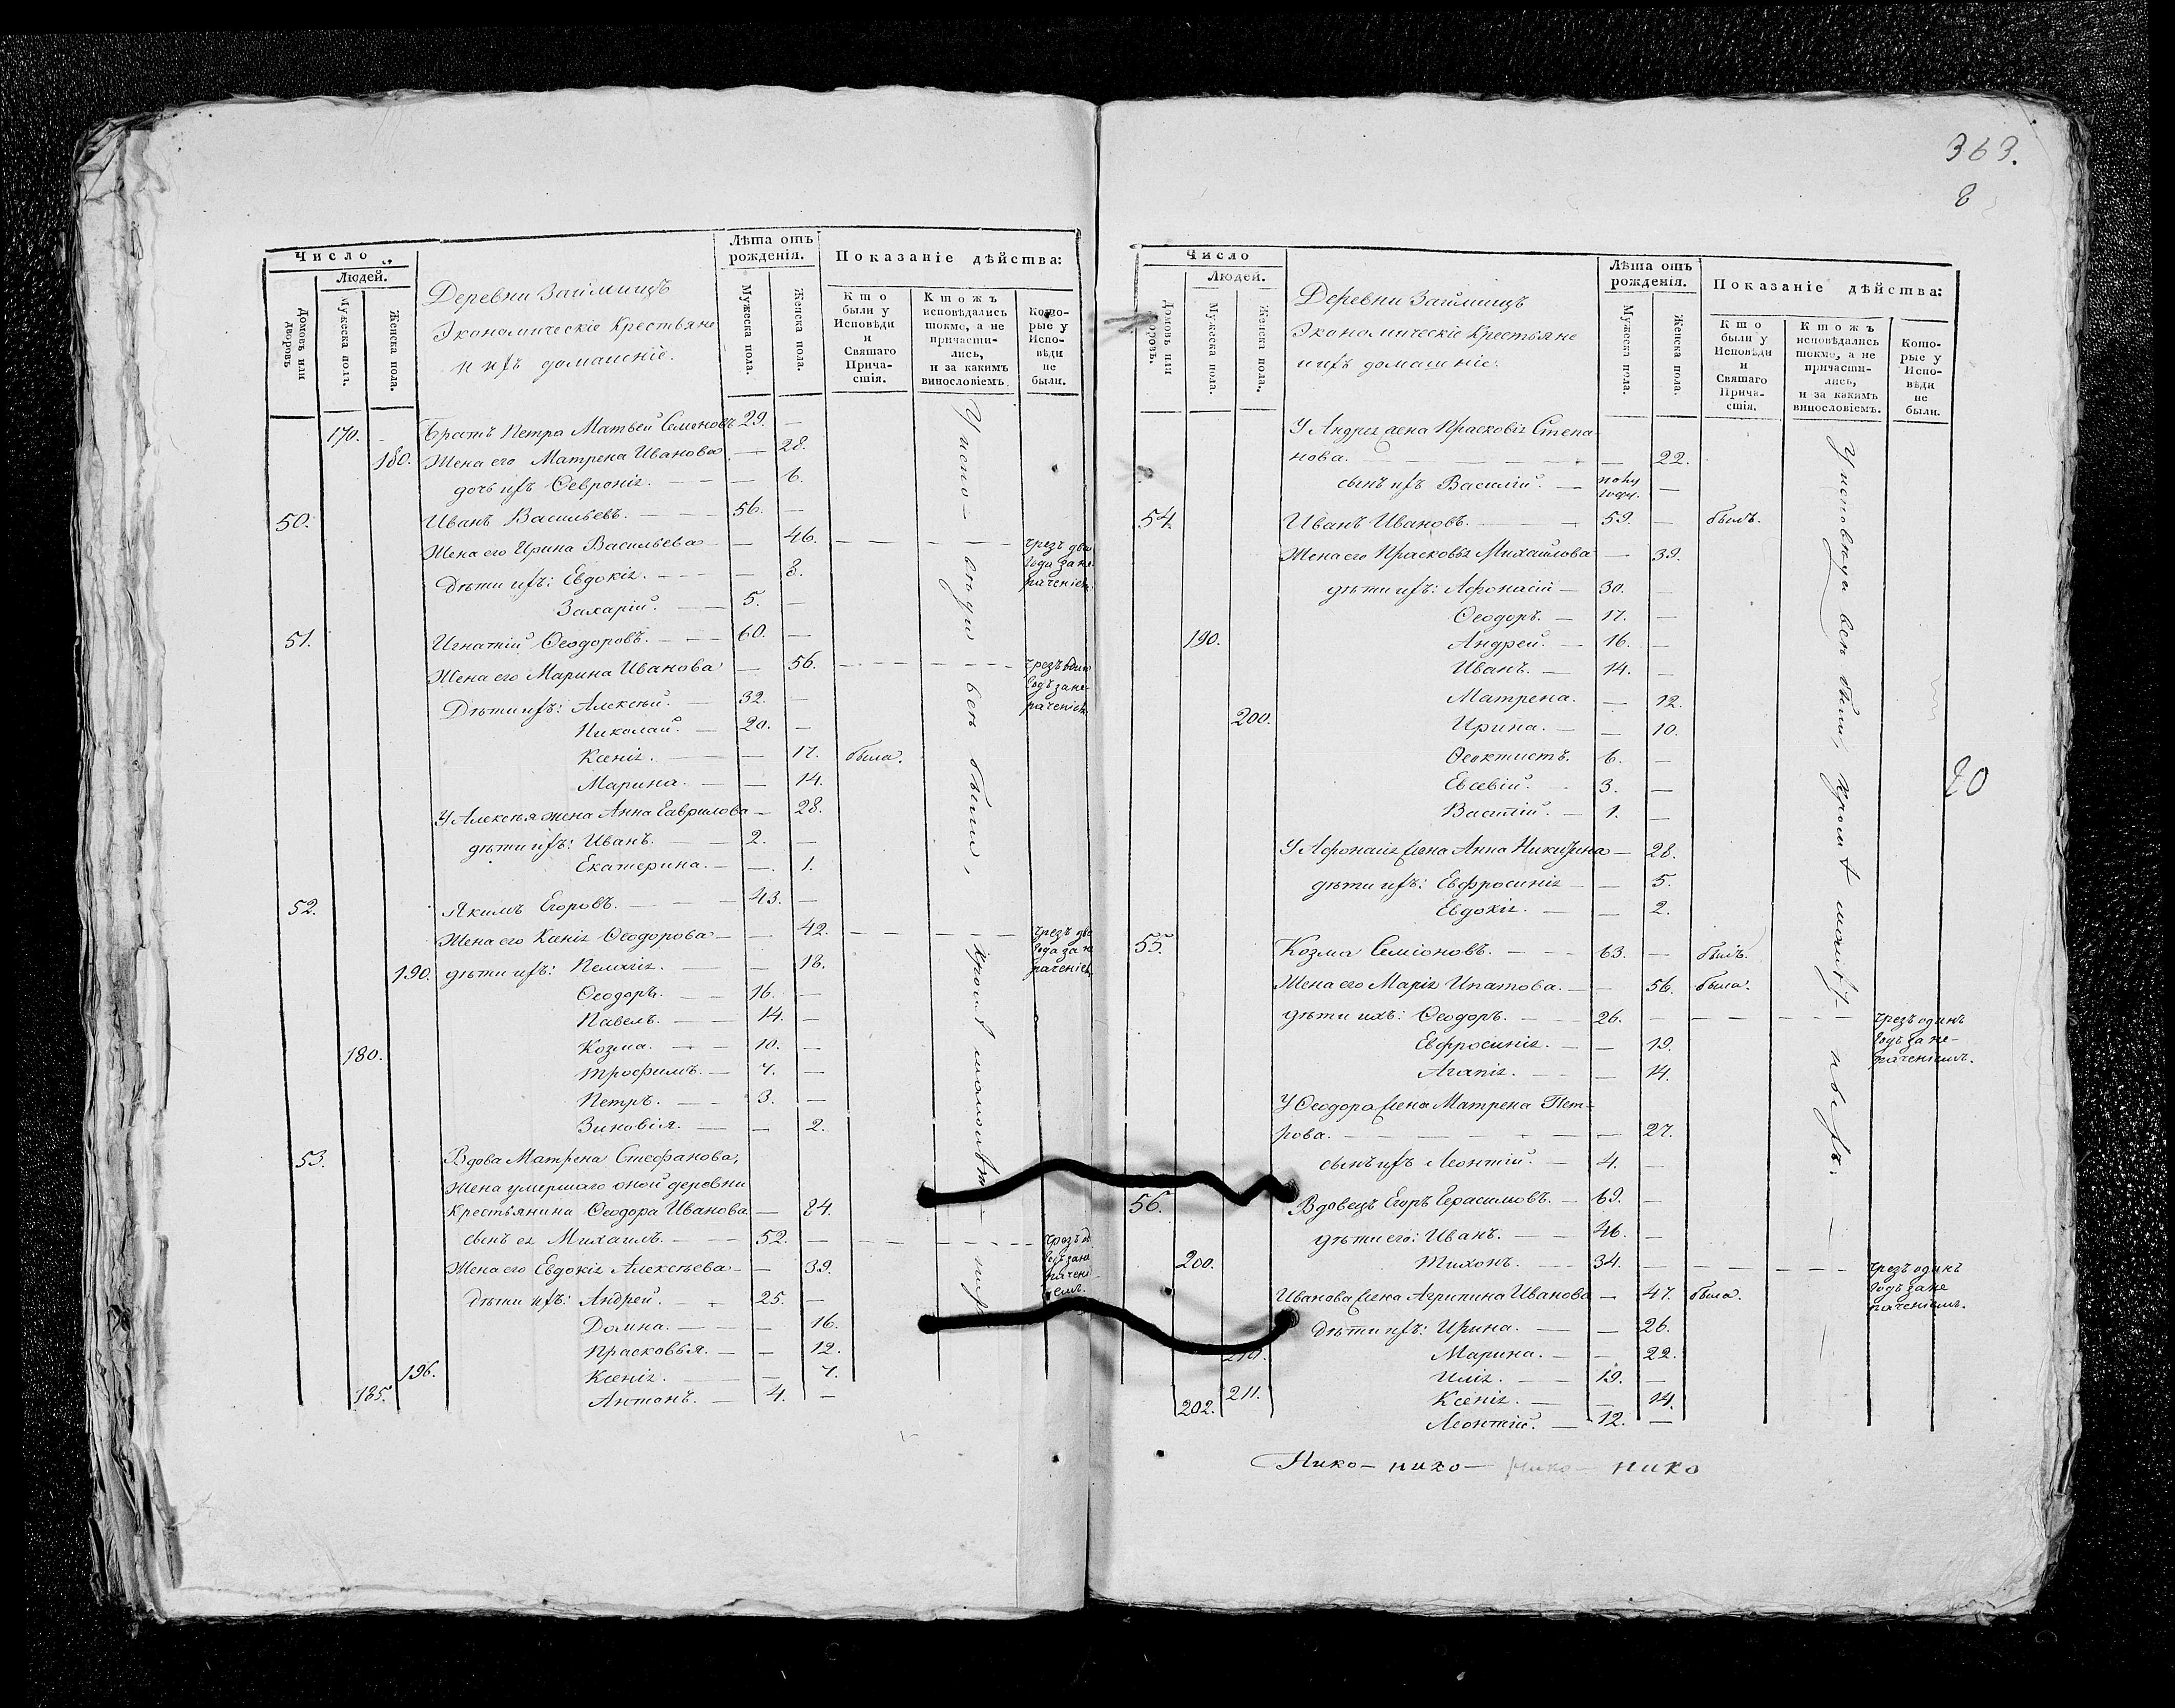 363.
8
Число
Людей.
Домовъ или дворовъ.
Мужеска пола.
Женска пола.
Деревни Займищъ
Экономическіе Крестьяне
и ихъ домашніе.
Лѣта отъ рожденія.
Мужеска пола.
Женска пола.
Показаніе дѣйства:
Кто были у Исповѣди и Святаго Причастія.
Ктожъ исповѣдались токмо, а не причастились, и за какимъ винословіемъ.
Которые у Исповѣди не были.
170. Братъ Петра Матвей Семеновъ 29. —
180. Жена его Матрена Иванова — 28.
дочь ихъ Февронія. — 6.
50. Иванъ Васильевъ. — 56. —
Жена его Ирина Васильева — 46. чрезъ два
года за не
раченіем.
Дѣти ихъ: Евдокія. — 8.
Захарій. — 5. —
51. Игнатій Ѳеодоровъ. — 60. —
Жена его Марина Иванова — 56. чрезъ один
годъ за не-
раченіем.
Дѣти ихъ: Алексѣй. — 32. —
Николай. — 20. —
Ксенія. — 17. была.
Марина. — 14.
У Алексѣя жена Анна Гаврилова — 28.
дѣти ихъ: Иванъ. — 2. —
Екатерина. — 1.
52. Якимъ Егоровъ. — 43. —
Жена его Ксенія Ѳеодорова — 42. чрезъ два
года за не
раченіем
190. дѣти ихъ: Пелагія. — 18.
Ѳеодоръ. — 16. —
Павелъ. — 14. —
180. Козма. — 10. —
Трофимъ. — 7. —
Петръ. — 3. —
Зиновія. — 2.
53. Вдова Матрена Стефанова,
Жена умершаго оной деревни
Крестьянина Ѳеодора Иванова — 84.
сынъ ея Михаилъ. — 52. — чрезъ од
годъ за не
рачені-
емъ.
Жена его Евдокія Алексѣева — 39.
Дѣти ихъ: Андрей. — 25. —
Домна. — 16.
Прасковья. — 12.
196. Ксенія. — 7.
185. Антонъ. — 4. —
У испо-вѣди всѣ были, кромѣ
Число
Людей.
Домовъ или дворовъ.
Мужеска пола.
Женска пола.
Деревни Займищъ
Экономическіе Крестьяне
и ихъ домашніе.
Лѣта отъ рожденія.
Мужеска пола.
Женска пола.
Показаніе дѣйства:
Кто были у Исповѣди и Святаго Причастія.
Ктожъ исповѣдались токмо, а не причастились, и за какимъ винословіемъ.
Которые у Исповѣди не были.
У Андрея жена Прасковія Степа-
нова. — 22.
сынъ ихъ Василій. — полу
году. —
54. Иванъ Ивановъ. — 59. — былъ.
Жена его Прасковья Михайлова — 39.
дѣти ихъ: Афонасій — 30. —
Ѳеодоръ. — 17. —
190. Андрей. — 16. —
Иванъ. — 14. —
Матрена. — 12.
200. Ирина. — 10.
Ѳеоктистъ. 6. —
Евсевій. — 3. —
1. —
У Афонасія жена Анна — 28.
дѣти ихъ: Евфросинія — 5.
Евдокія. — 2.
20
55. Козма Семіоновъ. — 63. — былъ.
Жена его Марія Ипатова. — 56. была.
дѣти ихъ: Ѳеодоръ. — 26. — чрезъ одинъ
годъ за не-
раченіемъ.
Евфросинія. — 19.
Агапія. — 14.
У Ѳеодора жена Матрена Пет-
рова. — 27.
сынъ ихъ Леонтій. — 4. —
56. Вдовецъ Егоръ Герасимовъ. — 69. —
дѣти его: Иванъ. — 46. —
200. Тихонъ. — 34. — чрезъ одинъ
годъ за не
раченіемъ.
Иванова жена Агрипина Иванова — 47. была.
Дѣти ихъ: Ирина. — 26.
210. Марина. — 22.
Илія. — 19. —
211. Ксенія. — 14.
202. Леонтій. — 12. —
У исповѣди всѣ были, кромѣ
Нико— нико— нико— нико